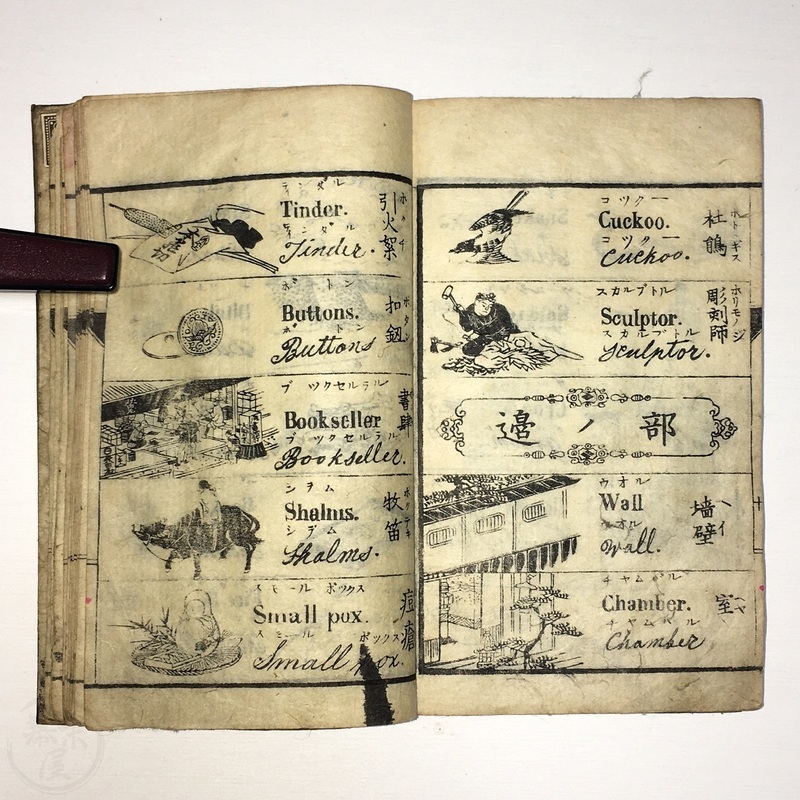 ティンダル
Tinder.
ティンダル
Tinder.
引火絮
ホクチ
大意切
ボトン
Buttons.
ボトン
Buttons
扣釼
ボタン
ブツクセルラル
Bookseller
ブツクセルラル
Bookseller.
書肆
シアム
Shalms.
シアム
Shalms.
牧笛
スモール ポックス
Small pox.
スモール ポックス
Small pox.
痘瘡
コツクー
Cuckoo.
コツクー
Cuckoo.
杜鵑
ホトトギス
スカルプトル
Sculptor.
スカルプトル
Sculptor.
彫剣師
ホリモノシ
邊ノ部
ウオル
Wall
ウオル
Wall.
墻壁
ヘイ
チャムバル
Chamber.
チャムバル
Chamber
室
ヘヤ